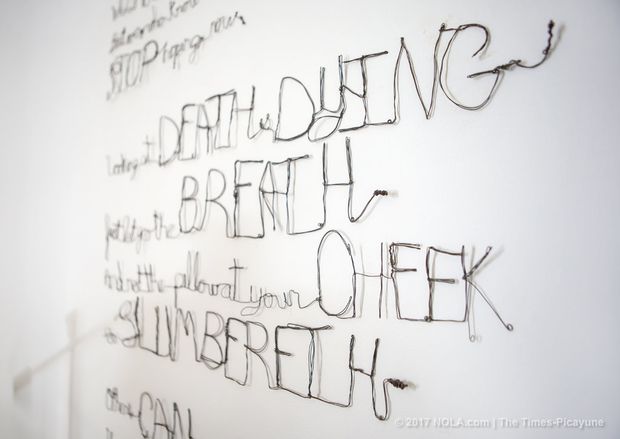 STOP
Looking at DEATH is DYING
Just let go the BREATH
And not the pillow at your CHEEK
SLUMBERETH
Others CAN
© 2017 NOLA.com | The Times-Picayune